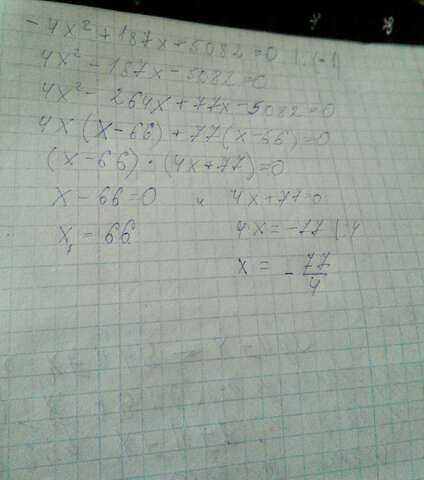 -4x² + 187x + 5082 = 0 | · (-1)
4x² - 187x - 5082 = 0
4x² - 264x + 77x - 5082 = 0
4x (x - 66) + 77 (x - 66) = 0
(x - 66) · (4x + 77) = 0
x - 66 = 0 и 4x + 77 = 0
x₁ = 66 4x = -77 | : 4
x = - 77/4